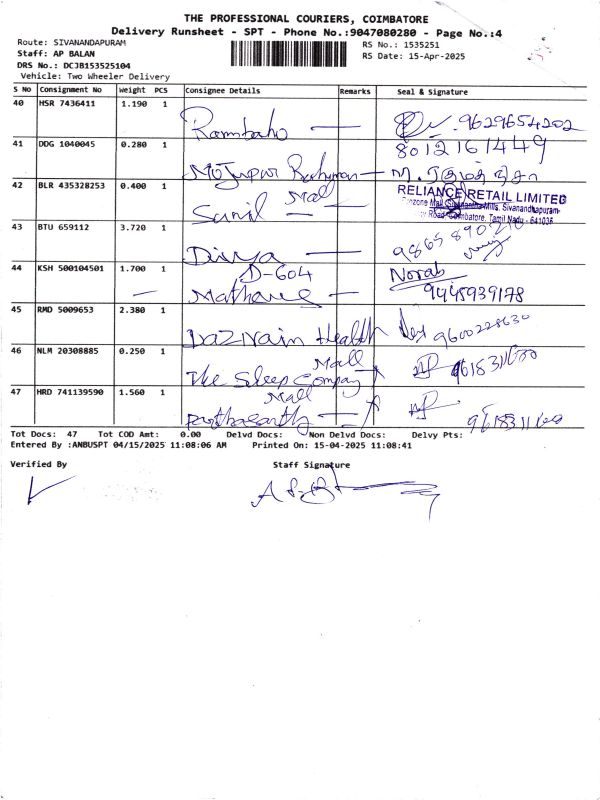 THE PROFESSIONAL COURIERS, COIMBATORE
Delivery Runsheet - SPT - Phone No.:9047080280 - Page No.:4
Route: SIVANANDAPURAM
RS No.: 1535251
Staff: AP BALAN
RS Date: 15-Apr-2025
DRS No.: DCJB153525104
Vehicle: Two Wheeler Delivery
S No Consignment No Weight PCS Consignee Details Remarks Seal & Signature
40 HSR 7436411 1.190 1 9629654202
41 DDG 1040045 0.280 1 8012161449
42 BLR 435328253 0.400 1 Sunil Mall RELIANCE RETAIL LIMITED
Sivanandhapuram
Coimbatore, Tamil Nadu - 641036
43 BTU 659112 3.720 1 Divya
44 KSH 500104501 1.700 1 D-604 9445939178
45 RMD 5009653 2.380 1 Health 9600228630
46 NLM 20308885 0.250 1 The Sleep Company Mall
47 HRD 741139590 1.560 1 Mall
Tot Docs: 47 Tot COD Amt: 0.00 Delvd Docs: Non Delvd Docs: Delvy Pts:
Entered By :ANBUSPT 04/15/2025 11:08:06 AM Printed On: 15-04-2025 11:08:41
Verified By Staff Signature